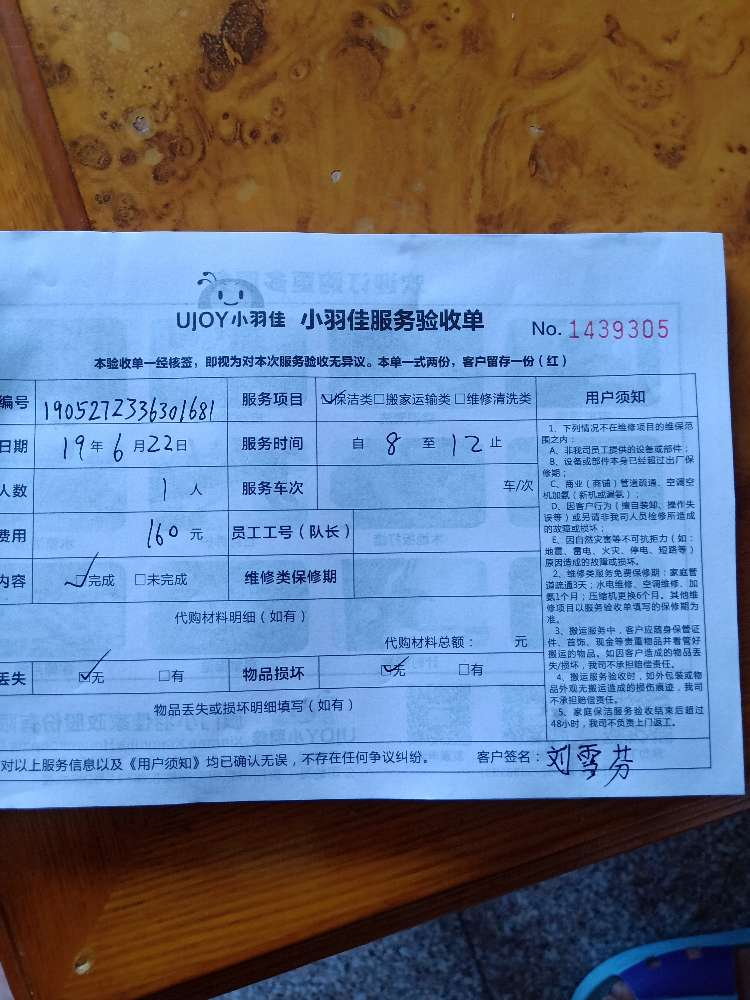 UJOY小羽佳 小羽佳服务验收单 No. 1439305
本验收单一经核签，即视为对本次服务验收无异议。本单一式两份，客户留存一份（红）
编号 1905272336301681 服务项目 ☑保洁类□搬家运输类 □维修清洗类 用户须知
日期 19年6月22日 服务时间 自 8 至 12 止
人数 1 人 服务车次 车/次
费用 160 元 员工工号（队长）
内容 ☑完成 □未完成 维修类保修期
代购材料明细（如有）
代购材料总额： 元
丢失 ☑无 □有 物品损坏 ☑无 □有
物品丢失或损坏明细填写（如有）
对以上服务信息以及《用户须知》均已确认无误，不存在任何争议纠纷。 客户签名：刘雪芬
1、下列情况不在维修项目的维保范
围之内：
A、非我司员工提供的设备或部件；
B、设备或部件本身已经超过出厂保
修期；
C、商业（商铺）管道疏通、空调空
机加氨（新机或漏氨）；
D、因客户行为（擅自装卸、操作失
误等）或另请非我司人员检修所造成
的故障或损坏；
E、因自然灾害等不可抗拒力（如：
地震、雷电、火灾、停电、短路等）
原因造成的故障或损坏。
2、维修类服务免费保修期：家庭管
道疏通3天；水电维修、空调维修、加
氨1个月；压缩机更换6个月。其他维
修项目以服务验收单填写的保修期为
准。
3、搬运服务中，客户应随身保管证
件、首饰、现金等贵重物品并看管好
搬运的物品。如因客户造成的物品丢
失/损坏，我司不承担赔偿责任。
4、搬运服务验收时，如外包装或物
品外观无搬运造成的损伤痕迹，我司
不承担赔偿责任。
5、家庭保洁服务验收结束后超过
48小时，我司不负责上门返工。